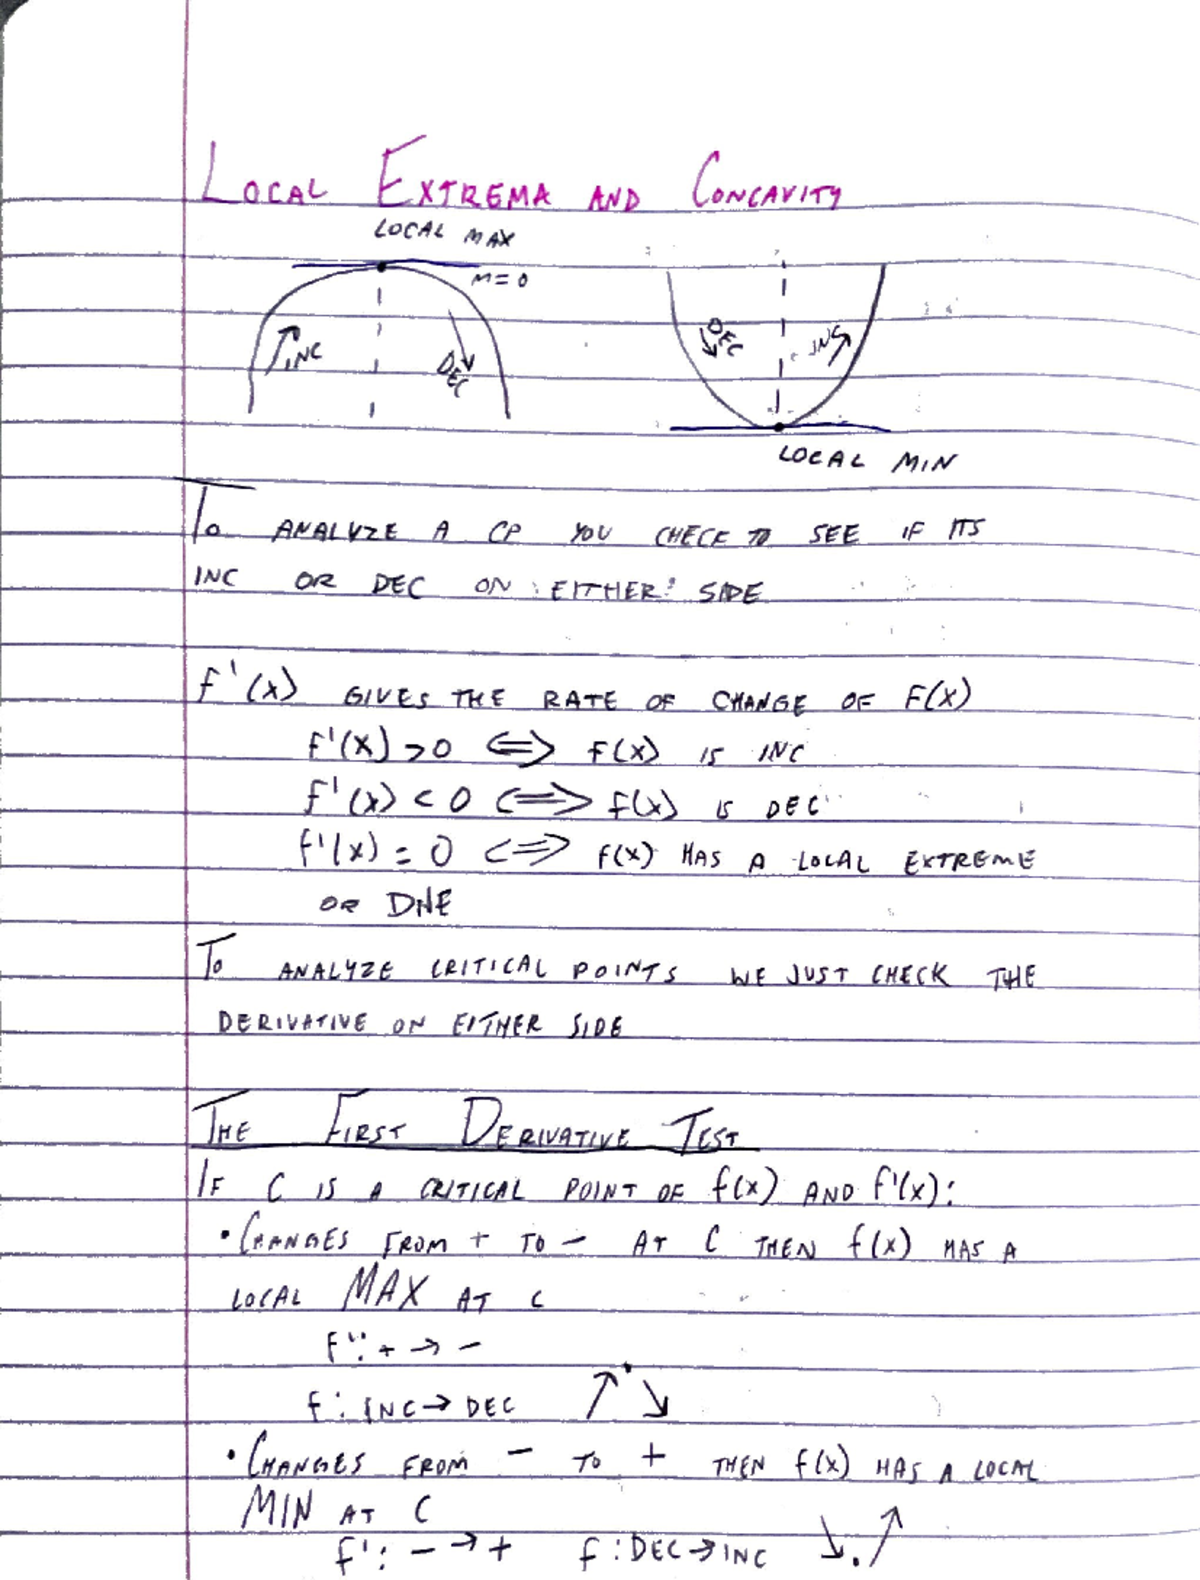 LOCAL EXTREMA AND CONCAVITY
LOCAL MAX
M=0
INC
DEC
DEC
INC
LOCAL MIN
TO ANALYZE A CP YOU CHECK TO SEE IF ITS
INC OR DEC ON EITHER SIDE
f'(x) GIVES THE RATE OF CHANGE OF F(x)
f'(x) > 0 <=> f(x) IS INC
f'(x) < 0 <=> f(x) IS DEC
f'(x) = 0 <=> f(x) HAS A LOCAL EXTREME
OR DNE
TO ANALYZE CRITICAL POINTS WE JUST CHECK THE
DERIVATIVE ON EITHER SIDE
THE FIRST DERIVATIVE TEST
IF C IS A CRITICAL POINT OF f(x) AND f'(x):
• CHANGES FROM + TO - AT C THEN f(x) HAS A
LOCAL MAX AT C
f': + → -
f: INC → DEC ↗ ↘
• CHANGES FROM - TO + THEN f(x) HAS A LOCAL
MIN AT C
f': - → + f: DEC → INC ↘ . ↗